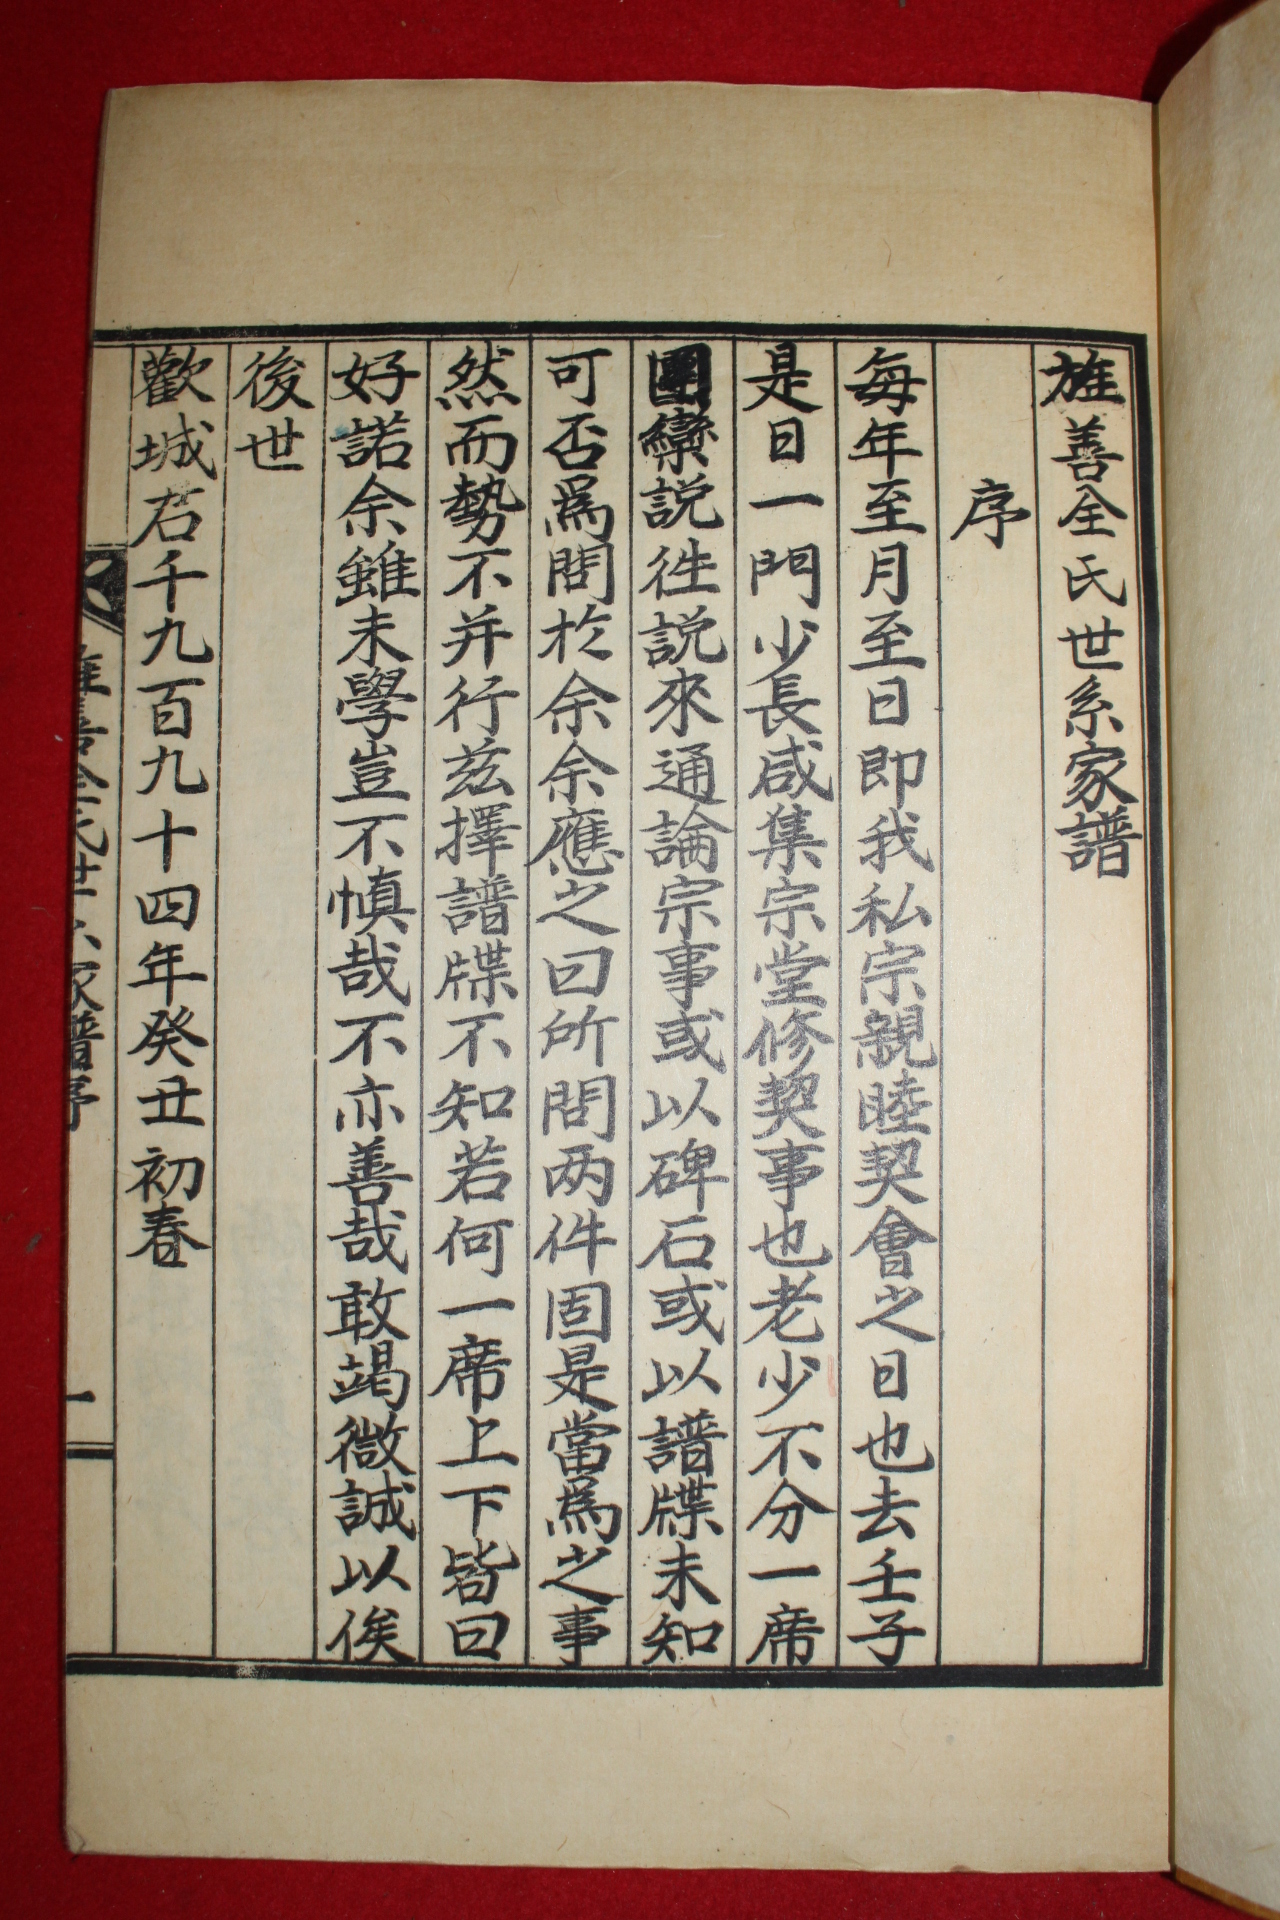 旌善全氏世系家譜
序
每年至月至日即我私宗親睦契會之日也去壬子
是日一門少長咸集宗堂修契事也老少不分一席
團欒説徃説來通論宗事或以碑石或以譜牒未知
可否爲問於余余應之曰所問两件固是當爲之事
然而勢不并行兹擇譜牒不知若何一席上下皆曰
好諾余雖未學豈不慎哉不亦善哉敢竭微誠以俟
後世
歡城君千九百九十四年癸丑初春
旌善全氏世系家譜序
一